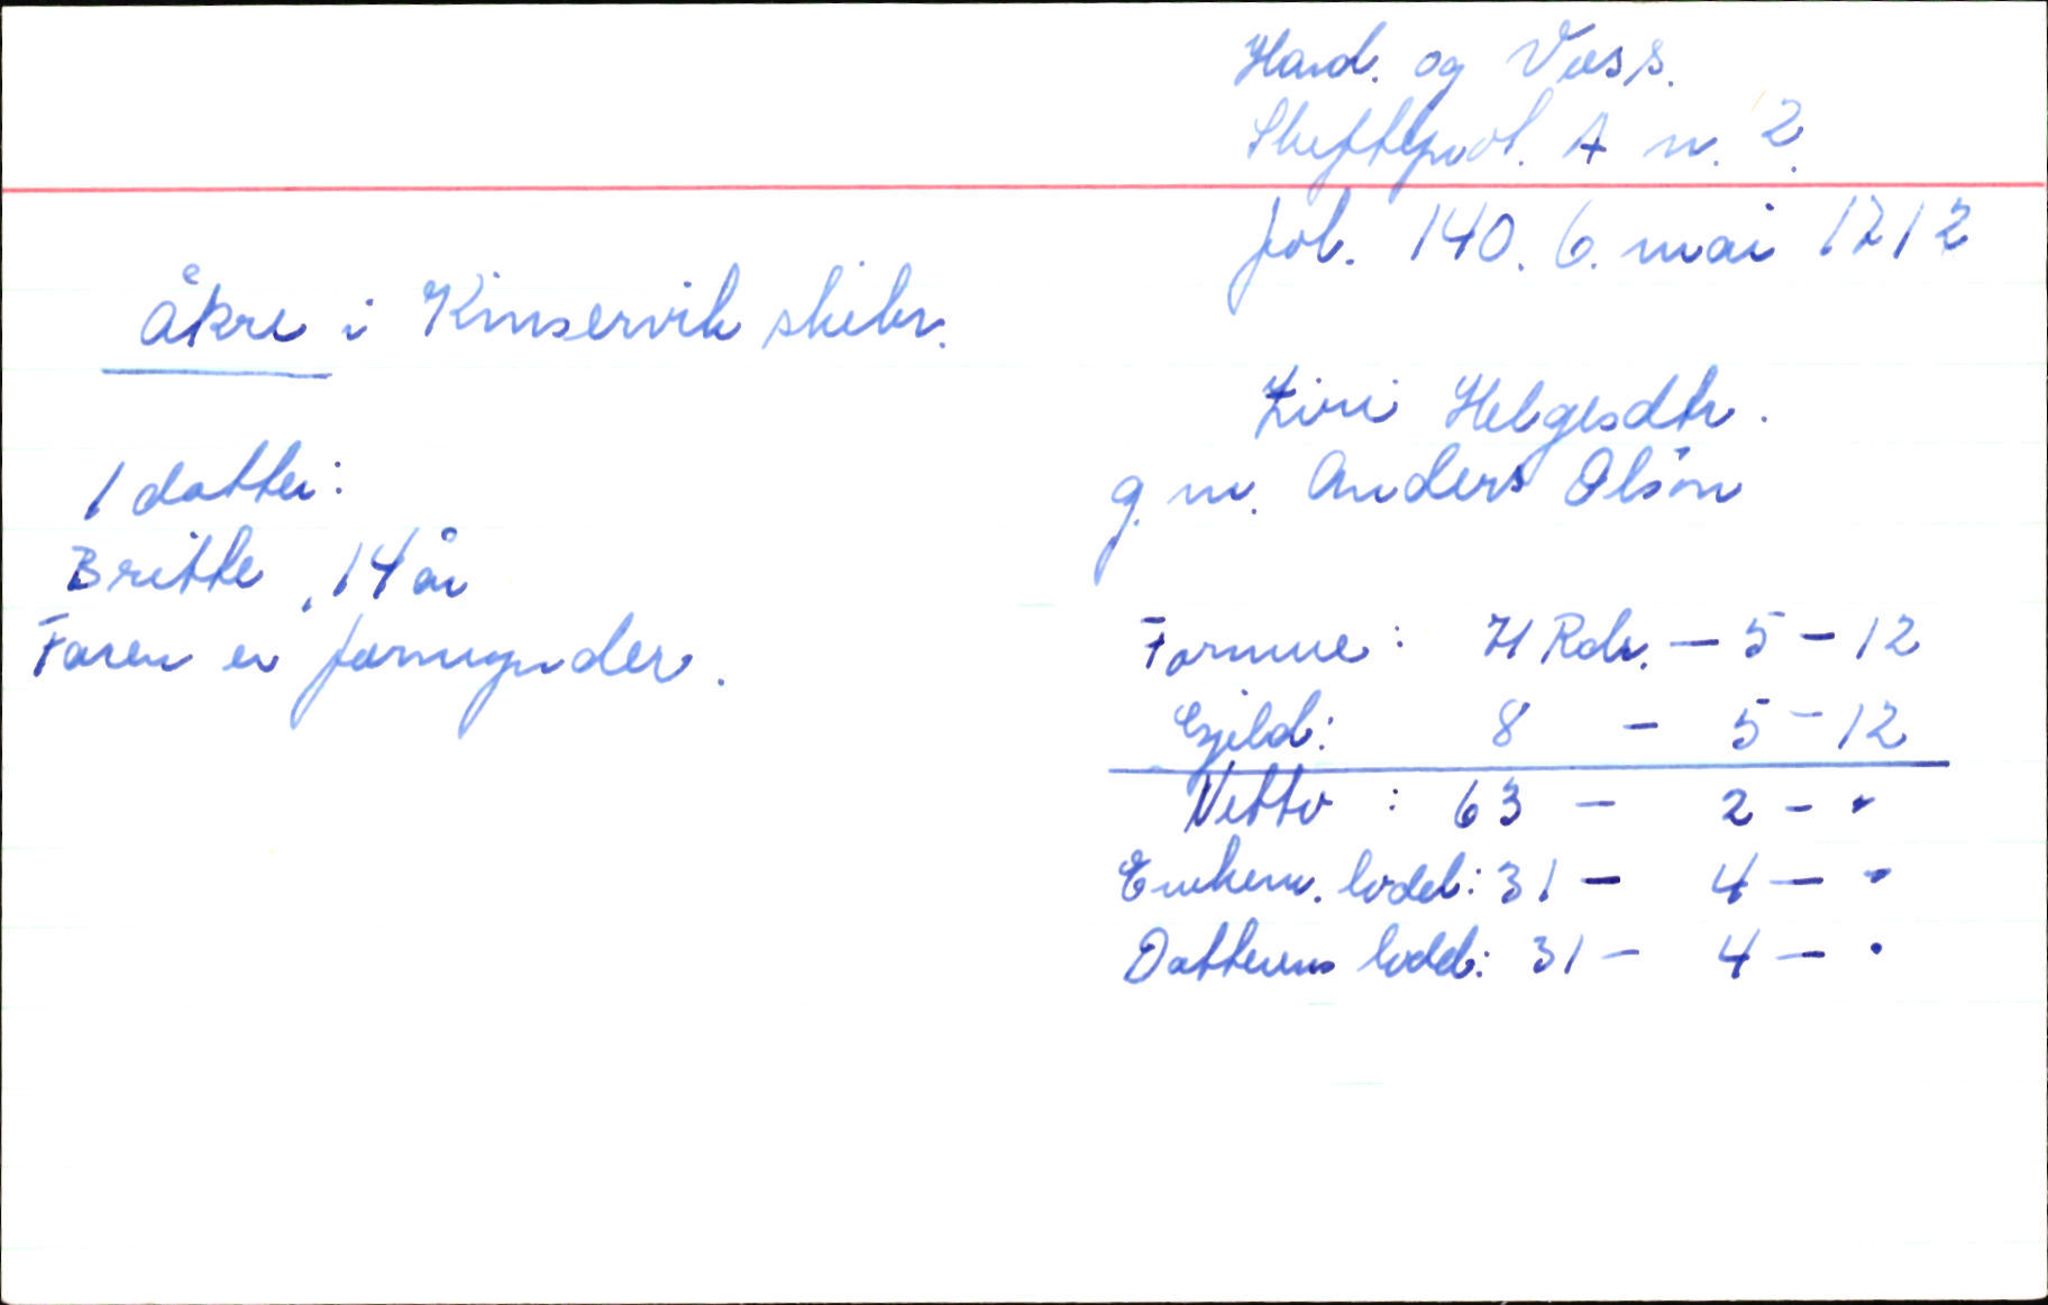 Hard. og Voss.
Skifteprot. A nr. 2.
fol. 140. 6. mai 1712
Åkre i Kinservik skibr.
Siri Helgesdtr.
g. m. Anders Olsøn
1 datter:
Britte, 14 år
Faren er formynder.
Formue: 71 Rdr. - 5 - 12
Gjeld: 8 - 5 - 12
Netto: 63 - 2 - "
Enkem. lodd: 31 - 4 - "
Datterens lodd: 31 - 4 - "